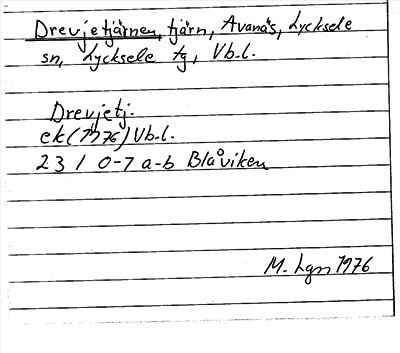 Drevjetjärnen, tjärn, Avanäs, Lycksele
sn, Lycksele tg, Vb.l.
Drevjetj.
ek (1976) Vb.l.
23 I 0-7 a-b Blåviken
M. Lgn 1976